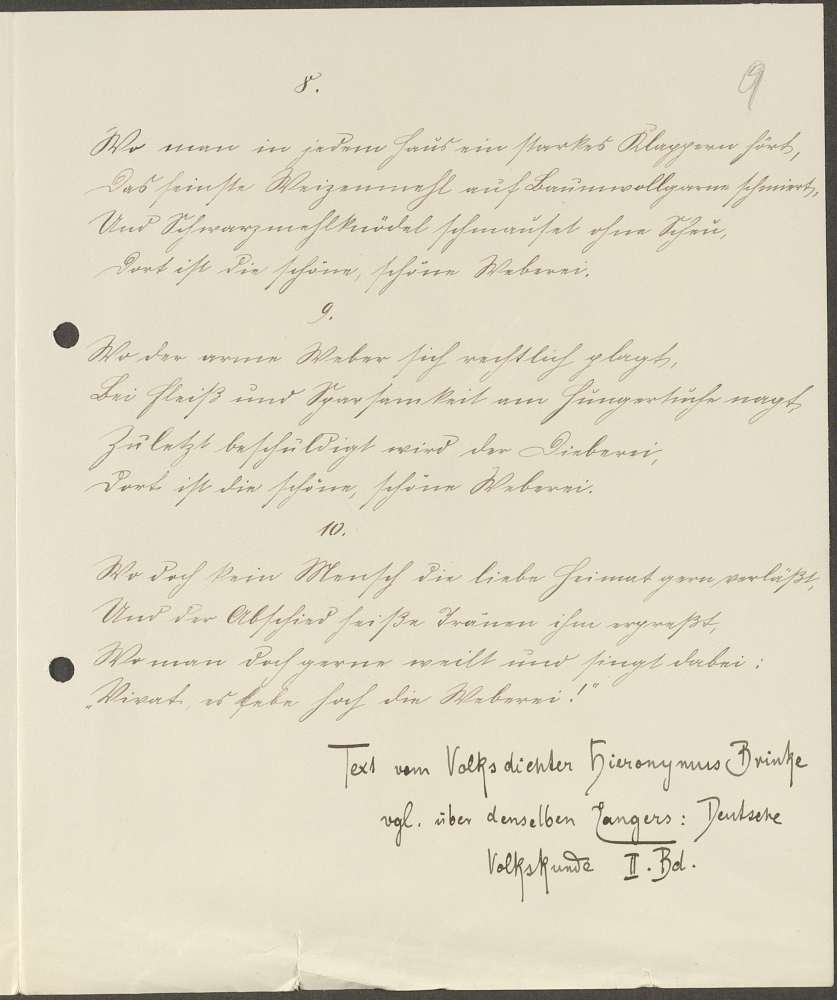 9
8.
Wo man in jedem Haus ein starkes Klappern hört,
Das feinste Weizenmehl auf Baumwollgarne schmiert,
Und Schwarzmehlknödel schmauset ohne Scheu,
Dort ist die schöne, schöne Weberei.
9.
Wo der arme Weber sich rechtlich plagt,
Bei Fleiß und Sparsamkeit am Hungertuche nagt,
Zuletzt beschuldigt wird der Dieberei,
Dort ist die schöne, schöne Weberei.
10.
Wo doch kein Mensch die liebe Heimat gern verläßt,
Und der Abschied heiße Tränen ihm erpreßt,
Wo man doch gerne weilt und singt dabei:
„Vivat, es lebe hoch die Weberei!"
Text vom Volksdichter Hieronymus Brinke
vgl. über denselben Langers: Deutsche
Volkskunde II. Bd.